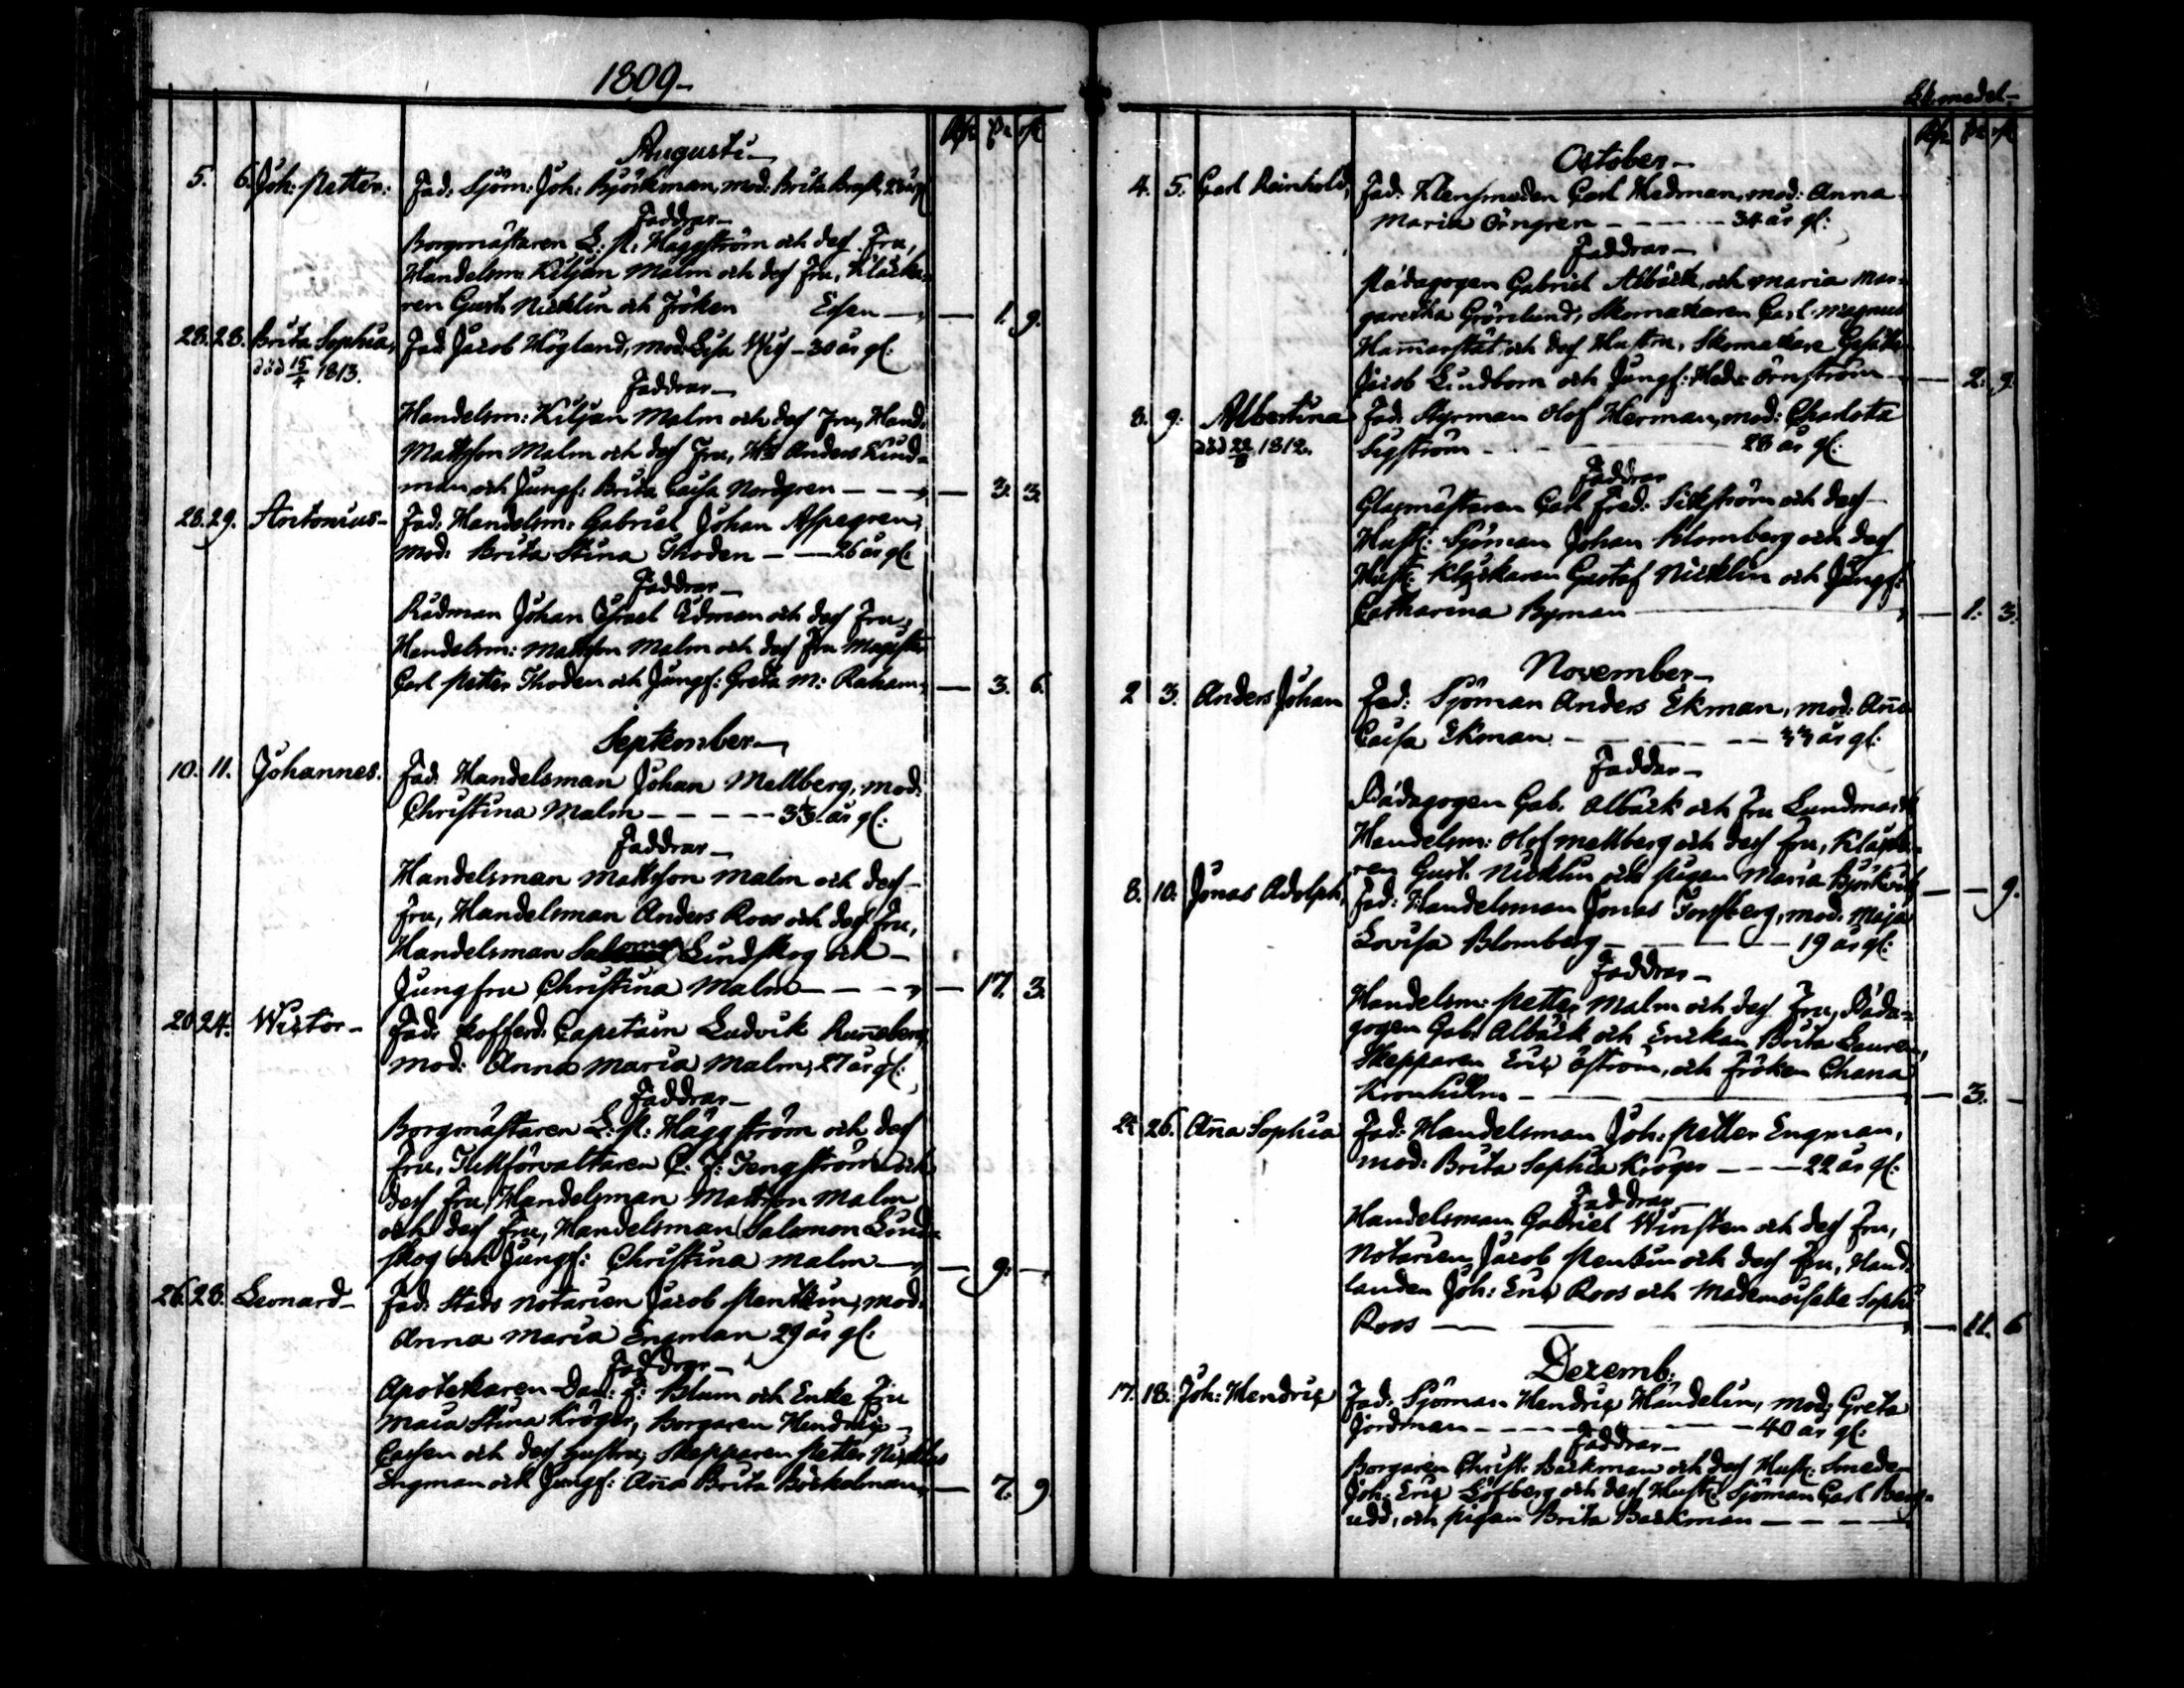 1809-
Augusti-
5. 6. Joh: Petter: Fad: Sjöm: Joh: Björkman, mod: Brita Kraft, 28 år gl
Faddrar-
Borgmästaren L: P: Häggström och dess Fru,
Handelsm: Kiljan Malm och dess Fru, Klocka-
ren Gust: Nicklin och Fröken Essen — — 1. 9.
28. 28. Brita Sophia, Fad: Jacob Höglund, mod: Lisa Wis - 30 år gl:
död 15/4 1813.
Faddrar-
Handelsm: Kiljan Malm och dess Fru, Hand:
Mattsson Malm och dess Fru, Anders Lind-
man och Jungf: Brita Caisa Nordgren — — 3. 3.
28. 29. Antonius- Fad: Handelsm: Gabriel Johan Aspegren,
mod: Brita Stina Thoden — — 26 år gl:
Faddrar-
Rådman Johan Israel Edman och dess Fru,
Handelsm: Mattsson Malm och dess Fru Magister
Carl Petter Thoden och Jungf: Greta M: Raham, — 3. 6.
September-
10. 11. Johannes. Fad: Handelsman Johan Mellberg, mod:
Christina Malm — — — 33 år gl:
Faddrar-
Handelsman Mattsson Malm och dess-
Fru, Handelsman Anders Roos och dess Fru,
Handelsman Salomon Lindskog och —
Jungfru Christina Malm — — — — 17. 3.
20 24. Wictor- Fad: Kofferd: Capitain Ludvik Runeberg
mod: Anna Maria Malm, 27 år gl:
Faddrar-
Borgmästaren L: P: Häggström och dess
Fru, Tullförvaltaren C: F: Tengström och
dess Fru, Handelsman Mattsson Malm
och dess Fru, Handelsman Salomon Lind-
skog och Jungf: Christina Malm — — 9. —
26. 28. Leonard- Fad: Stads Notarien Jacob Pentzin, mod:
Anna Maria Engman 29 år gl:
Faddrar-
Apotekaren Dan: F: Blum och Enke Fru
Maia Stina Kröger, Borgaren Hendric
Cassen och dess hustru, Skepparen Petter Nicklas
Engman och Jungf: Ana Brita Böckelman, — 7. 9
October-
4. 5. Carl Reinhold, Fad: Klensmeden Carl Hedman, mod: Anna
Maria Örngren — — — 34 år gl:
Faddrar-
Pädagogen Gabriel Albäck, och Maria Mar-
garetha Grönlund, Skomakaren Carl Magnus
Hamarstät och dess Hustru, Skomakare Gesällen
Jacob Lindbom och Jungf: Hed: Örnström — 2. 9.
8. 9. Albertina Fad: Styrman Olof Herman, mod: Charlotta
död 22/8 1812. Sigström — — — 28 år gl:
Faddrar
Glasmästaren Carl Fred: Sickström och dess
Hustr: Sjöman Johan Blomberg och dess
Hustr: Klockaren Gustaf Nicklin och Jungf:
Catharina Byman — — 1. 3.
November-
2 3. Anders Johan Fad: Sjöman Anders Ekman, mod: Ana
Caisa Ekman — — — — 33 år gl:
Faddar-
Pädagogen Gab. Albäck och Fru Lundmark
Handelsm: Olof Mellberg och dess Fru, Klocka-
ren Gust. Nicklin och Pigan Maria Björkvist — — 9.
8. 10. Jonas Adolph, Fad: Handelsman Jonas Forssberg, mod: Maja
Lovisa Blomberg — — — 19 år gl:
Faddrar-
Handelsm: Petter Malm och dess Fru, Päda-
gogen Gab: Albäck och Enckan Brita Lauren,
Skepparen Eric Öström, och Fröken Chara
Kronhielm — — 3. —
22 26. Ana Sophia Fad: Handelsman Joh: Petter Engman,
mod: Brita Sophia Kröger — — 22 år gl:
Faddrar-
Handelsman Gabriel Winsten och dess Fru,
Notarien Jacob Pentzin och dess Fru, Hand-
landen Joh: Eric Roos och Mademoiselle Sophi
Roos — — 11. 6
Decemb:
17. 18. Joh: Hendric Fad: Sjöman Hendric Händelin, mod: Greta
Jordman — — — 40 år gl:
Faddrar-
Borgaren Christ: Backman och dess Hustr: Smeden
Joh: Eric Löfberg och dess Hustr: Sjöman Carl Berg-
, och pigan Brita Backman — — —